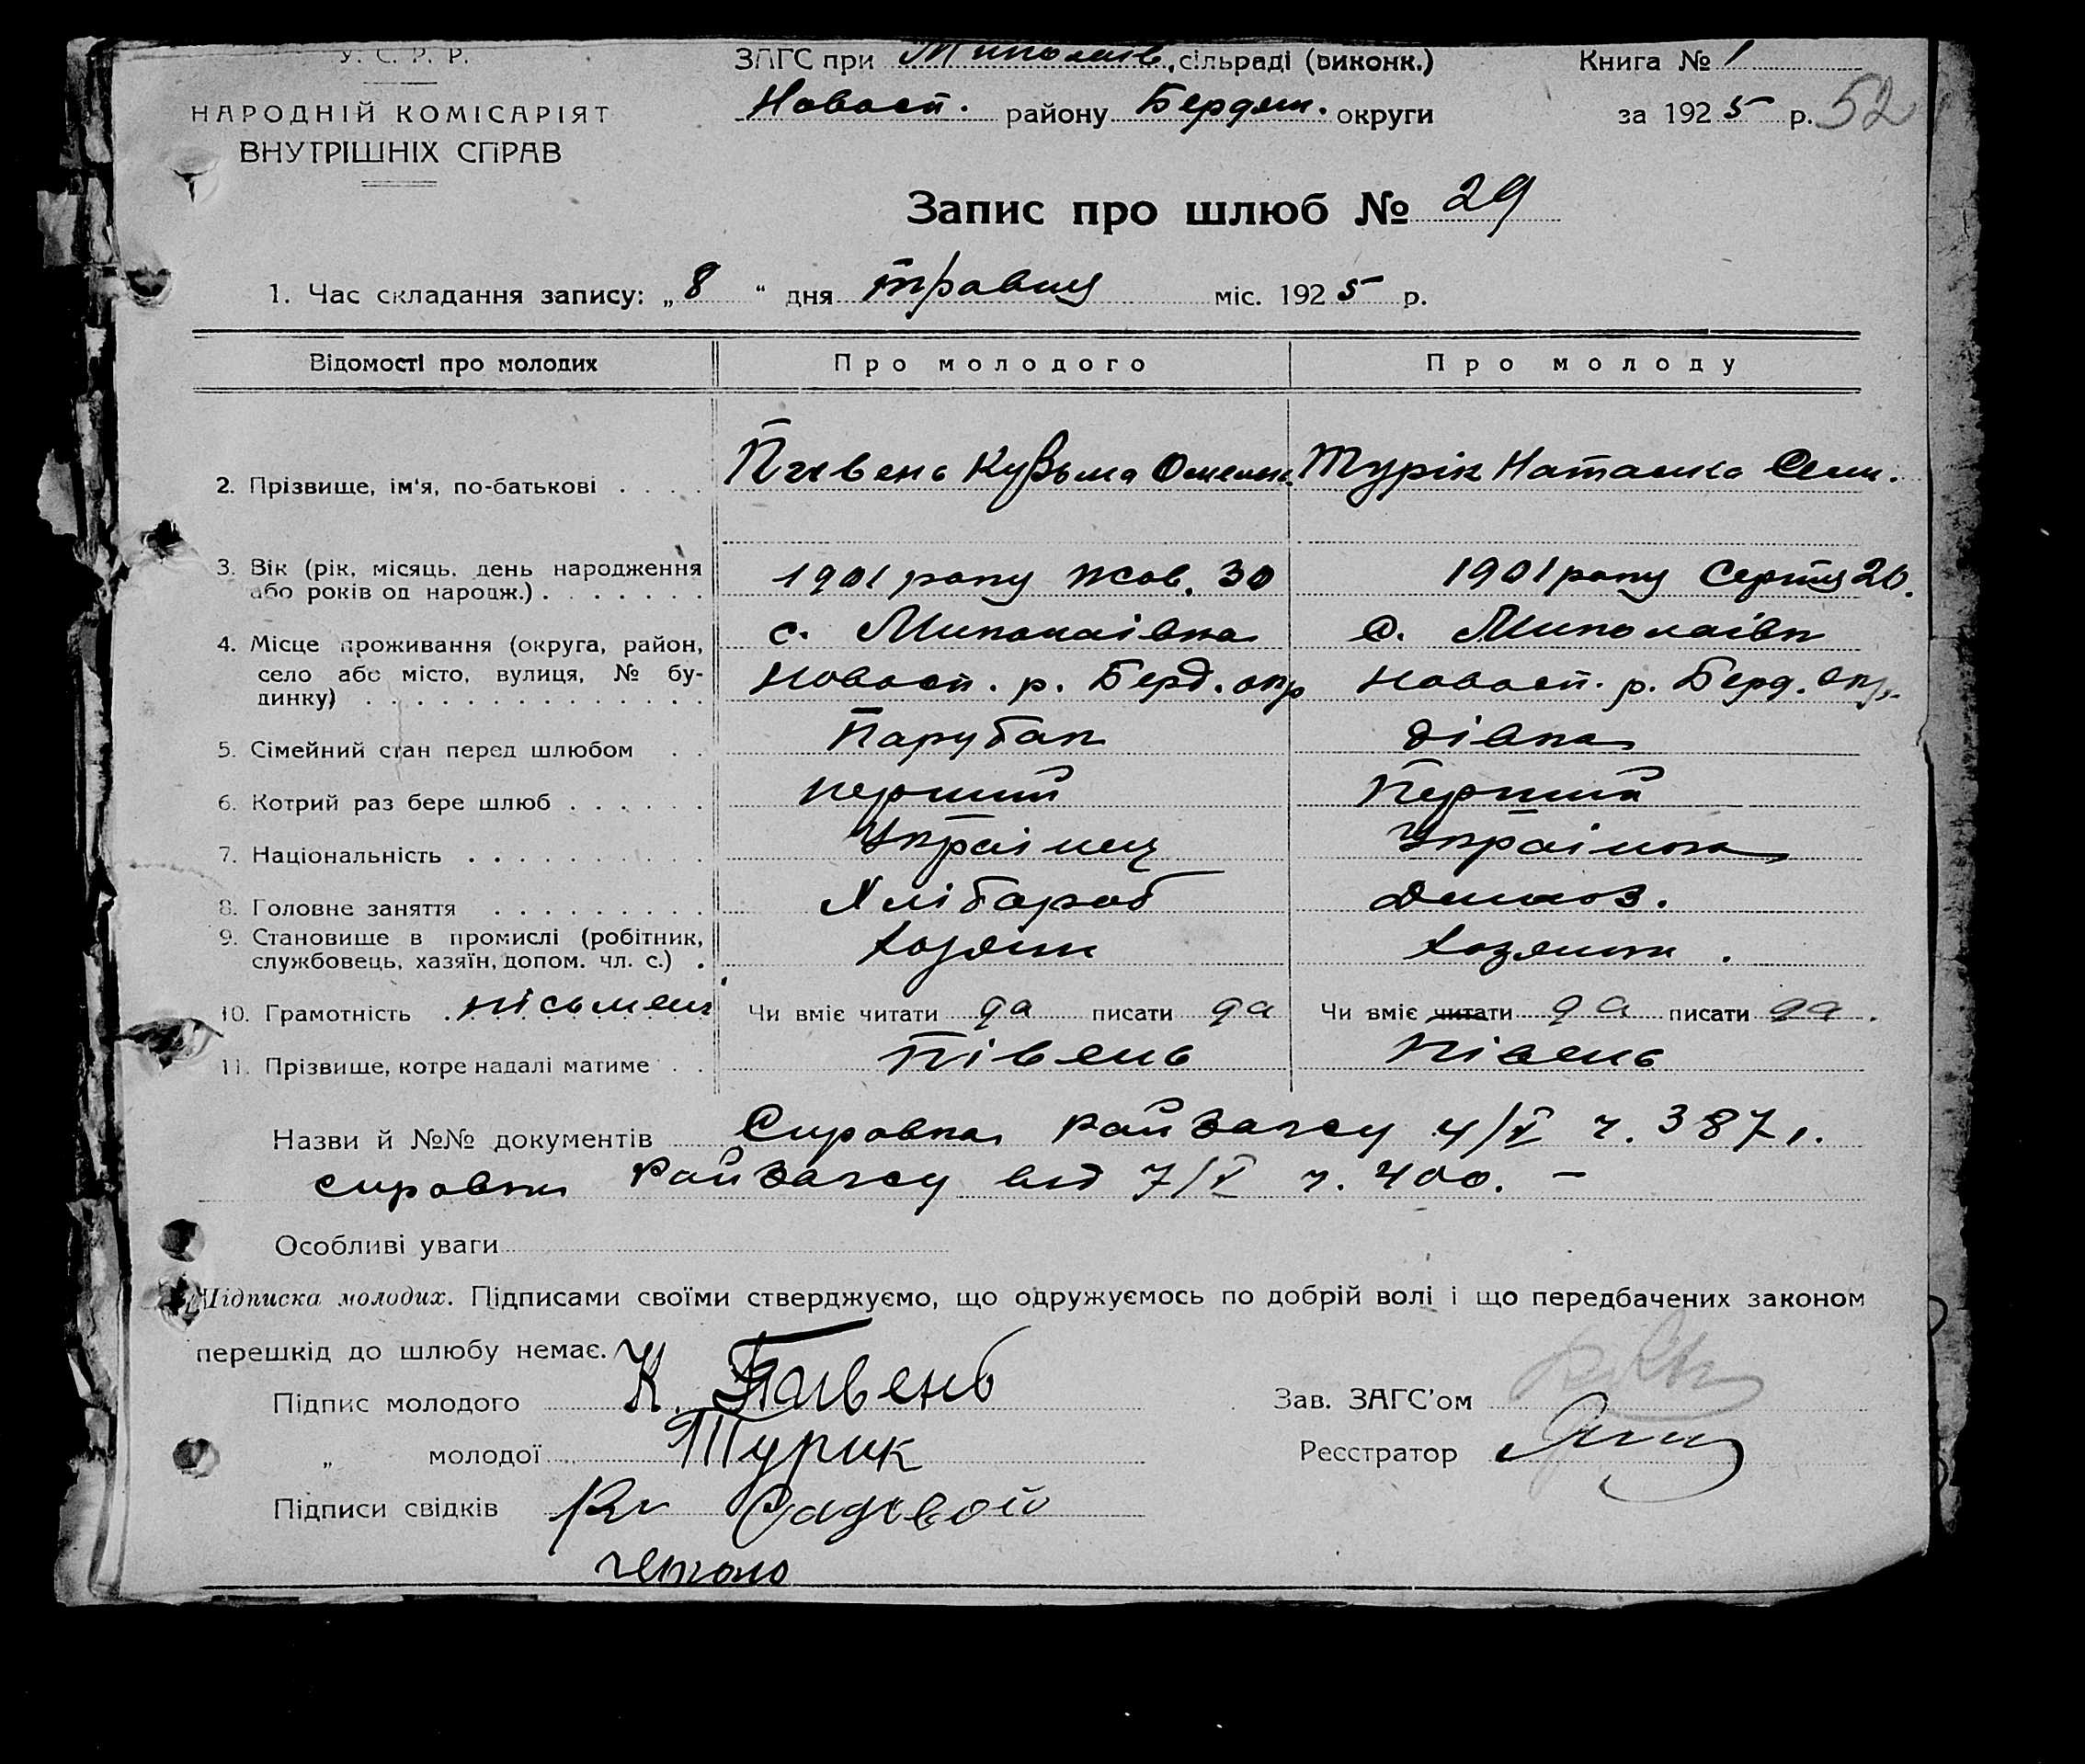 У. С. Р. Р.
НАРОДНІЙ КОМІСАРІЯТ
ВНУТРІШНІХ СПРАВ
ЗАГС при Миколаїв. сільраді (виконк.)
Новосп. району Бердян. округи
Книга № 1
за 1925 р. 52
Запис про шлюб № 29
1. Час складання запису: „8“ дня травня міс. 1925 р.
Відомості про молодих Про молодого Про молоду
2. Прізвище, ім'я, по-батькові . . . . Пивень Кузьма Омелян. Турік Наталка Сем.
3. Вік (рік, місяць, день народження 1901 року Жов. 30 1901 року Серпня 20.
або років од народж.) . . . . . . .
4. Місце проживання (округа, район, с. Миколаівка с. Миколаівк
село або місто, вулиця, № бу- Новосп. р. Берд. окр Новосп. р. Берд. окр.
динку) . . . . . . . . . . . . . .
5. Сімейний стан перед шлюбом . . Парубак дівка
6. Котрий раз бере шлюб . . . . . . перший Перший
7. Національність . . . . . . . . . . Украінец Украінка
8. Головне заняття . . . . . . . . . Хлібороб Домогоз.
9. Становище в промислі (робітник, Хозяін Хозяінк.
службовець, хазяїн, допом. чл. с.) .
10. Грамотність . письмені Чи вміє читати да писати да Чи вміє читати да писати да.
11. Прізвище, котре надалі матиме . . Півень Півень
Назви й №№ документів Справка РайЗагсу 4/V ч. 387 і.
справки РайЗагсу від 7/V ч. 400. –
Особливі уваги
Підписка молодих. Підписами своїми стверджуємо, що одружуємось по добрій волі і що передбачених законом
перешкід до шлюбу немає.
Підпис молодого К. Пивень
Зав. ЗАГС'ом
„ молодої Турик
Реєстратор
Підписи свідків Садовой